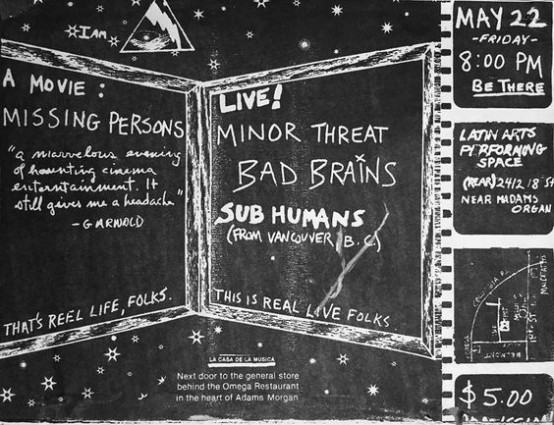 I AM
A MOVIE :
MISSING PERSONS
"a marvelous evening
of haunting cinema
entertainment. It
still gives me a headache"
- G ARNOLD
THAT'S REEL LIFE, FOLKS.
LIVE!
MINOR THREAT
BAD BRAINS
SUB HUMANS
(FROM VANCOUVER, B.C.)
THIS IS REAL LIVE FOLKS
LA CASA DE LA MUSICA
Next door to the general store
behind the Omega Restaurant
in the heart of Adams Morgan
MAY 22
- FRIDAY -
8:00 PM
BE THERE
LATIN ARTS
PERFORMING
SPACE
(REAR) 2412 18 ST
NEAR MADAMS
ORGAN
COLUMBIA
18TH ST.
BELMONT
$5.00